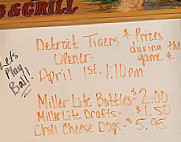 B & GRILL
Let's Play Ball!
Detroit Tigers & Prizes
Opener- during the
April 1st. 1:10pm game &
Miller Lite Bottles- $2.00
Miller Lite Drafts- $1.50
Chili Cheese Dogs- $5.95